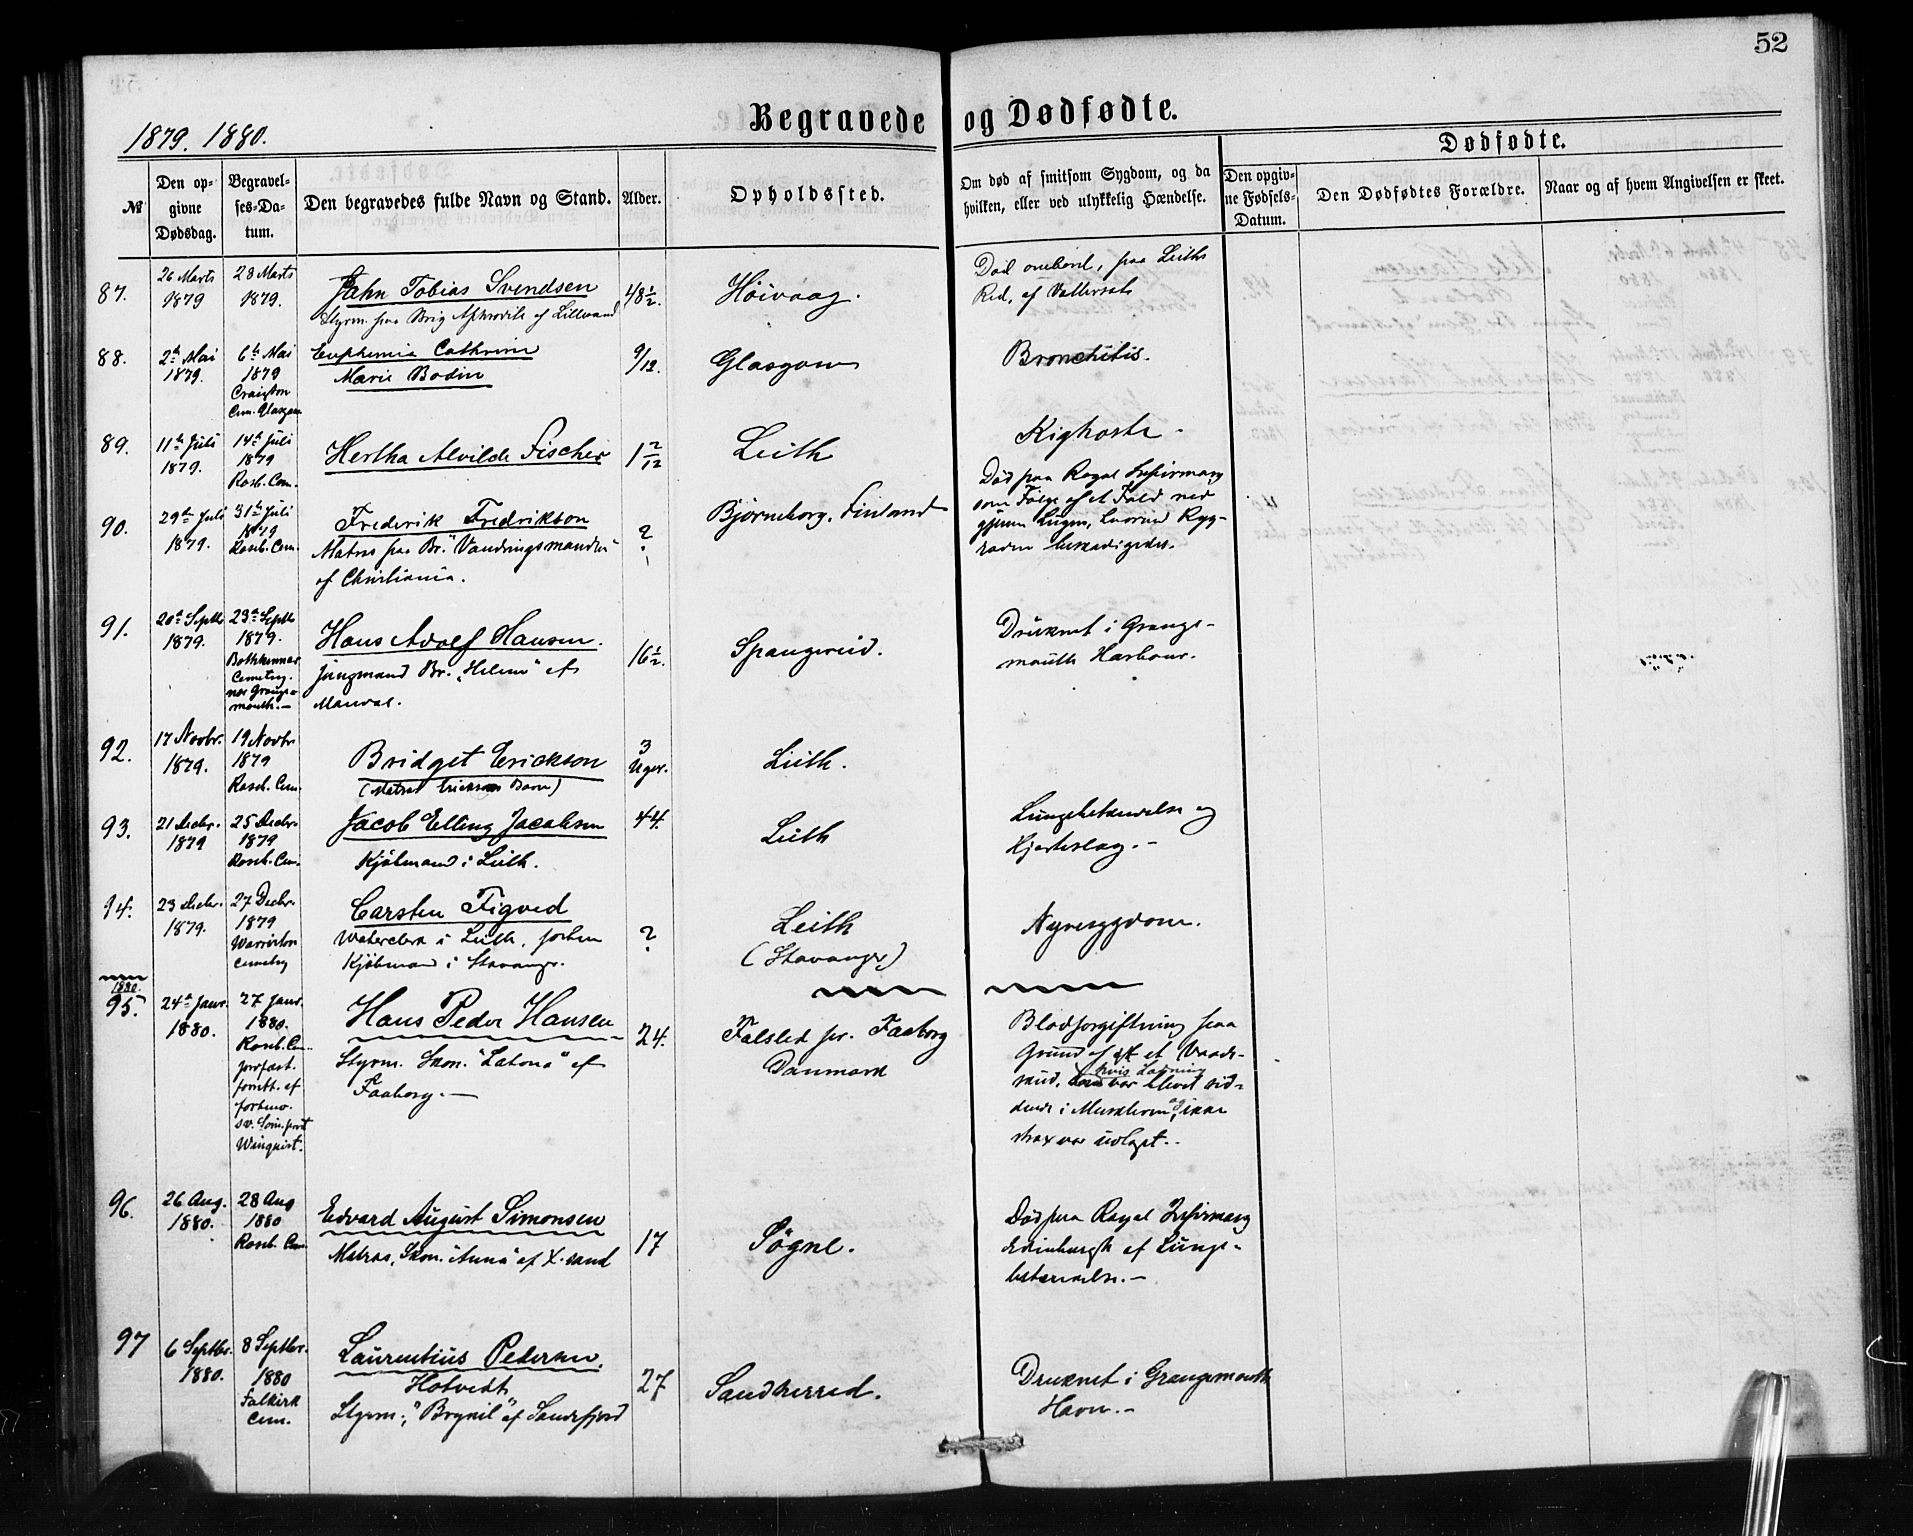 52
Begravede og Dødfødte.
1879. 1880.
Dødfødte.
№
Den opgivne Dødsdag.
Begravelses-Datum.
Den begravedes fulde Navn og Stand.
Alder.
Opholdssted.
Om død af smitsom Sygdom, og da
hvilken, eller ved ulykkelig Hændelse.
Den opgivne Fødsels-Datum.
Den Dødfødtes Forældre.
Naar og af hvem Angivelsen er skeet.
87.
26 Marts
1879
28 Marts
1879.
Jahn Tobias Svendsen
Styrm. paa Brig Aphrodite af Lillesand
48 1/2.
Höivaag.
Död ombord, paa Leiths
Red, af Vattersot
88.
2den Mai
1879.
6te Mai
1879
Craigton
Cem. Glasgow
Euphemia Cathrine
Marie Bodin
9/12.
Glasgow
Bronchitis.
89.
11te Juli
1879.
14de Juli
1879
Roseb. Cem.
Hertha Alvilde Fischer
1 2/12
Leith
Kighoste -
90.
29de Juli
1879.
31te Juli
1879
Roseb. Cem.
Frederik Fredrikson
Matros paa Br. "Vandringsmanden"
af Christiania.
?
Björneborg, Finland
Död paa Royal Infirmary
som Fölge af et Fald ned
gjennem Lugen, hvorved Ryg-
raden beskadigedes.
91.
20de Septb
1879.
23de Septb
1879.
Bothkennar
Cemetery
near Grange-
mouth. -
Hans Adolf Hansen.
Jungmand Br. "Helene" af
Mandal.
16 1/2.
Spangereid.
Druknet i Grange-
mouth Harbour.
92.
17 Novbr.
1879.
19 Novbr
1879
Roseb. Cem.
Bridget Erickson
(Matros Ericksons Barn)
3
Uger.
Leith.
93.
21 Decbr.
1879
25 Decbr.
1879
Roseb. Cem.
Jacob Elling Jacobsen
Kjöbmand i Leith.
44.
Leith
Lungebetændelse og
Hjerteslag. -
94.
23 Decbr.
1879.
27 Decbr.
1879
Warriston
Cemetery
Carsten Figved
Waterclerk i Leith, forhen
Kjöbmand i Stavanger.
?
Leith
(Stavanger)
Nyresygdom.
1880.
95.
24de Janr.
1880.
27 Janr.
1880.
Roseb. Cem.
jordfæst.
forrett. af
forhenv.
sv. Söm.præst
Winquist.
Hans Peder Hansen
Styrm. Skon. "Latona" af
Faaborg. -
24.
Falsled pr. Faaborg
Danmark
Blodforgiftning paa
Grund af et Vaade-
skud, hvis Ladning var blevet sid-
dende i Musklerne og ikke
strax var udtaget.
96.
26 Aug.
1880.
28 Aug
1880
Roseb. Cem.
Edvard August Simonsen
Matros, Skon. "Anna" af X.sand
17
Sögne.
Död paa Royal Infirmary
Edinburgh af Lunge-
betændelse. -
97
6 Septbr.
1880.
8 Septbr.
1880
Falkirk
Cem.
Laurentius Pedersen
Hotvedt
Styrm., "Brynil" af Sandefjord
27
Sandherred.
Druknet i Grangemouth
Havn. -